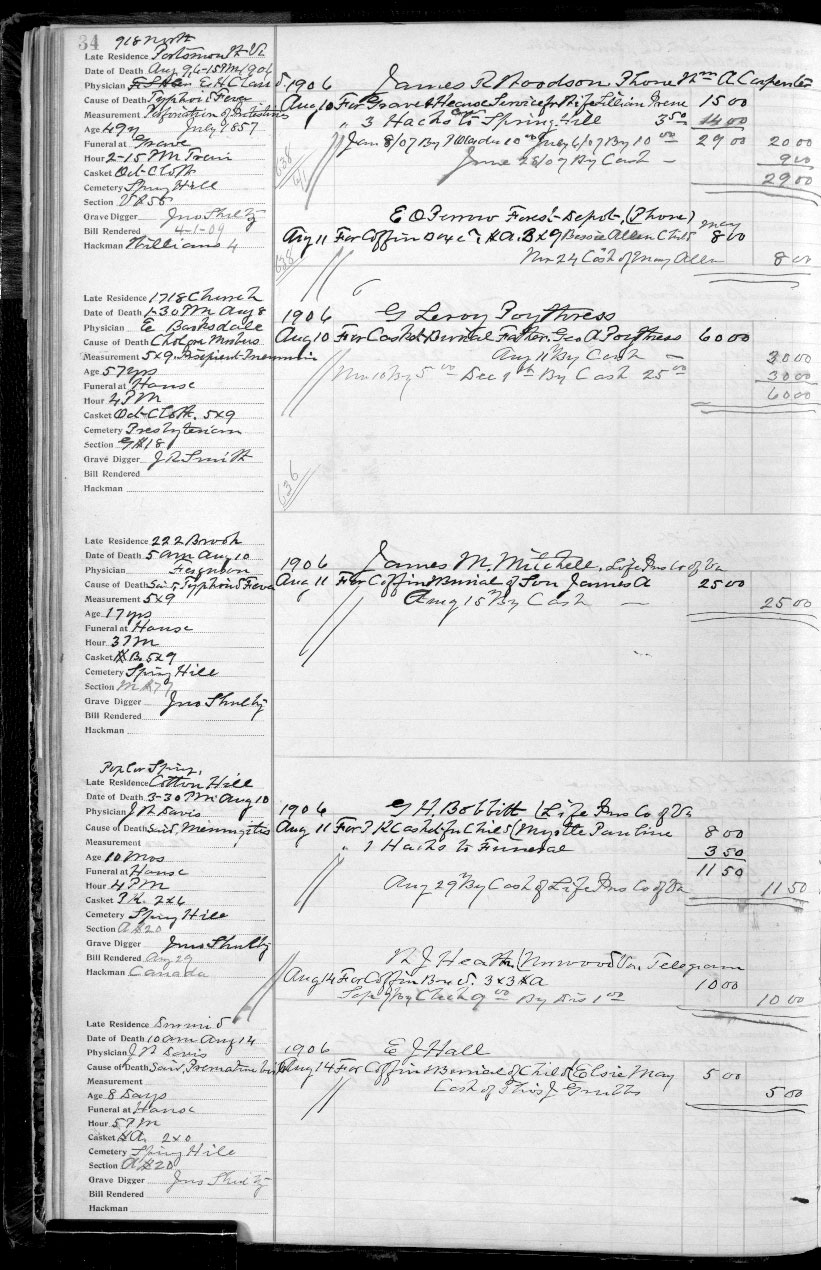 34
918 North
Late Residence Portsmouth Va
Date of Death Aug 9, 6-15 PM 1906
Physician E H Clan
Cause of Death Typhoid Fever
Measurement Perforation of Intestines
Age 49 yr July 1857
Funeral at Grave
Hour 2-15 PM Train
Casket Oct-Cloth
Cemetery Spring Hill
Section
Grave Digger Jno Shelby
Bill Rendered 4-1-09
Hackman Williams 4
1906 James R Woodson Phone A Carpenter
Aug 10 For Grave & Hearse Service for Wife Lillian Irene 15 00
" 3 Hacks to Spring Hill 3 50 14 00
Jan 8/07 By 10 00 July 6/07 By 10 00 29 00 20 00
June 28/07 By Cash — 9 00
29 00
638
641
E O Ferrow Forest-Depot, (Phone)
May
Aug 11 For Coffin Box &c, 5x9 Bessie Allen Child 8 00
Nov 24 Cash of May Allen 8 00
638
Late Residence 1718 Church
Date of Death 1-30 PM Aug 8
Physician E Barksdale
Cause of Death Cholera Morbus
Measurement 5x9 Insipient Pneumonia
Age 57 yrs
Funeral at House
Hour 4 PM
Casket Oct-Cloth. 5x9
Cemetery Presbyterian
Section
Grave Digger J R Smith
Bill Rendered
Hackman
1906 G Leroy Poythress
Aug 10 For Casket & Burial Father, Geo A Poythress 60 00
Aug 11 By Cash — 30 00
Nov 10 By 5 00 Dec 1st By Cash 25 00 30 00
60 00
636
Late Residence 222 Brook
Date of Death 5 am Aug 10
Physician Ferguson
Cause of Death Said, Typhoid Fever
Measurement 5x9
Age 17 yrs
Funeral at House
Hour 3 PM
Casket 5x9
Cemetery Spring Hill
Section
Grave Digger Jno Shelby
Bill Rendered
Hackman
1906 James M, Mitchell, Life Ins Co of Va
Aug 11 For Coffin & Burial of Son James A 25 00
" Aug 15 By Cash — 25 00
Poplar Spring,
Late Residence Cotton Hill
Date of Death 3-30 PM Aug 10
Physician J W Davis
Cause of Death Said, Meningitis
Measurement
Age 10 Mos
Funeral at House
Hour 4 PM
Casket P.K. 2x6
Cemetery Spring Hill
Section
Grave Digger Jno Shelby
Bill Rendered Aug 29
Hackman Canada
1906 G H. Bobbitt (Life Ins Co of Va
Aug 11 For P K Casket for Child (Myrtle Pauline 8 00
" 1 Hacks to Funeral 3 50
11 50
Aug 29 By Cash of Life Ins Co of Va 11 50
R J Heath, (Norwood Va. Telegram
Aug 14 For Coffin Box &c. 3x3 10 00
Sep 7 By Check 9 00 By Dis 1 00 10 00
Late Residence
Date of Death 10 am Aug 14
Physician J W Davis
Cause of Death Said, Premature birth
Measurement
Age 8 Days
Funeral at House
Hour 5 PM
Casket 2x0
Cemetery Spring Hill
Section
Grave Digger Jno Shelby
Bill Rendered
Hackman
1906 E J Hall
Aug 14 For Coffin & Burial of Child (Elsie May 5 00
Cash of Thos J Grubbs 5 00